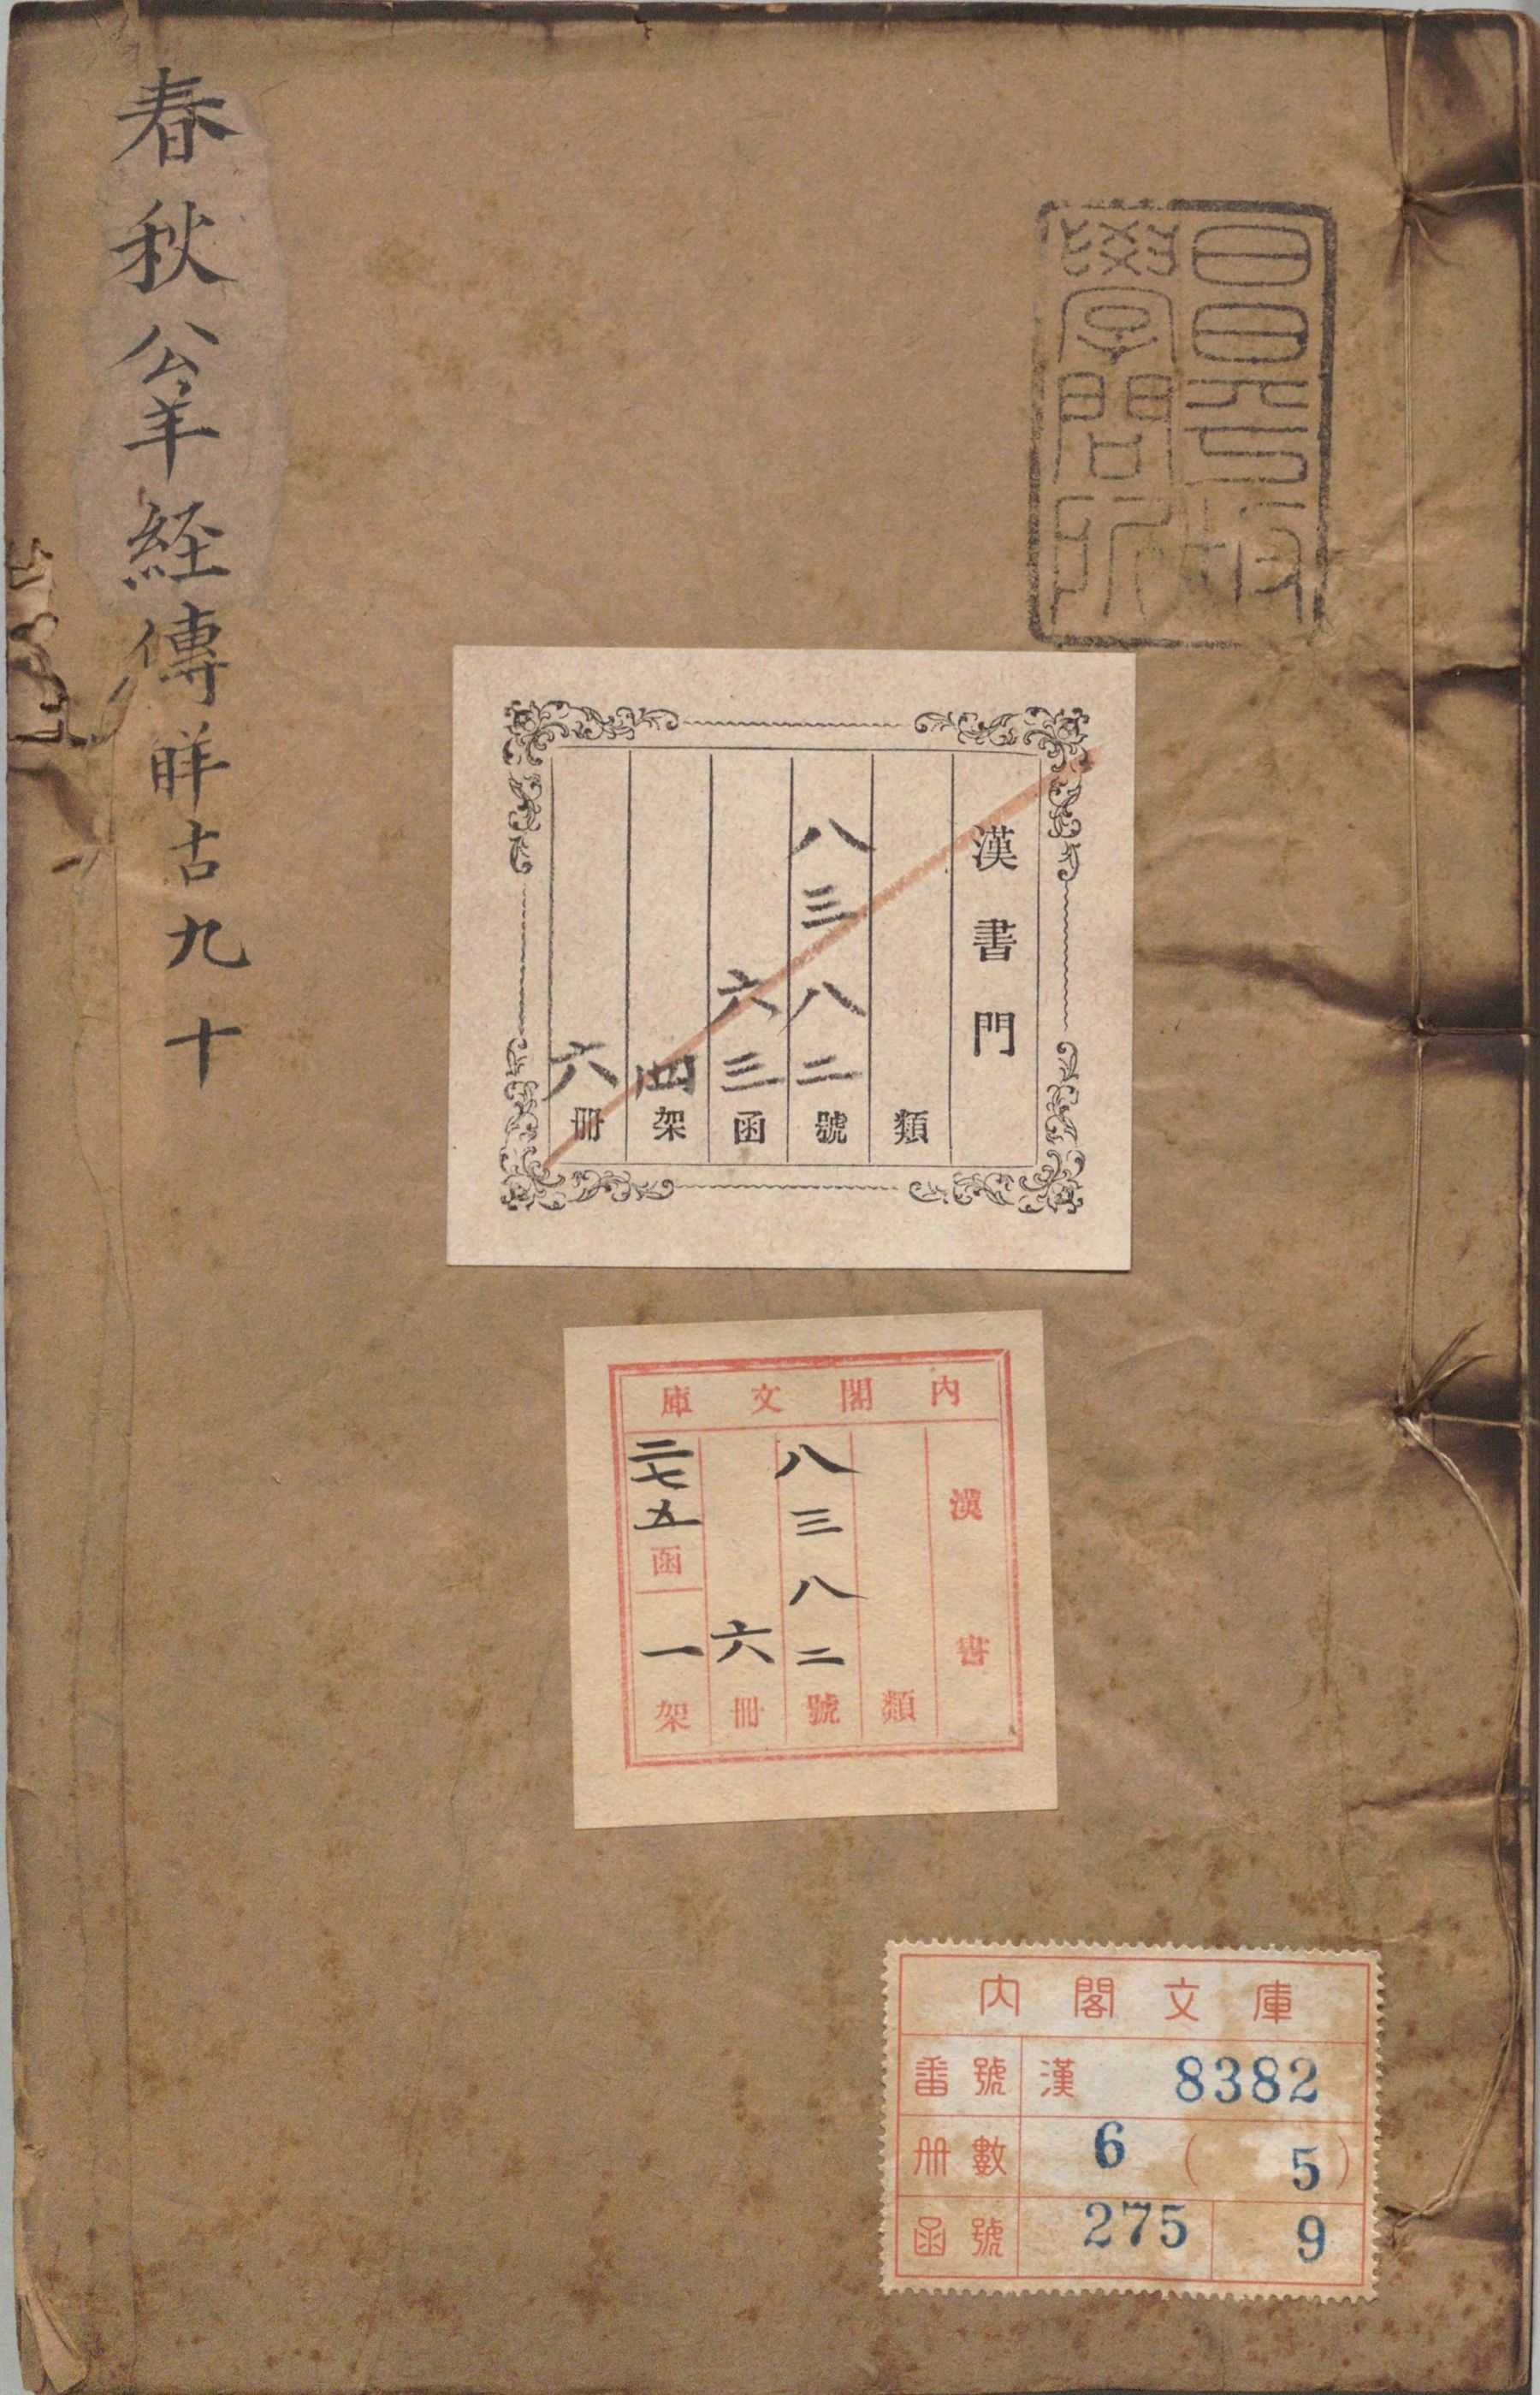 昌平坂
學問所
春秋公羊経傳觧古 九十
漢書門
類
八三八二號
六三函
四架
六冊
内閣文庫
漢書
類
八三八二號
六冊
二七五函
一架
内閣文庫
番號 漢 8382
冊數 6 ( 5 )
函號 275 9